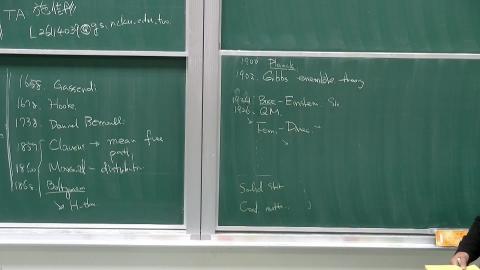 TA
L2614039@gs.ncku.edu.tw
1658. Gassendi
1678. Hooke
1738. Daniel Bernoulli
1857 Clausius → mean free
path
1860 Maxwell - distributn
1868 Boltzmann
↘ H-thm
1900 Planck
1902. Gibbs ensemble theory
1924: Bose-Einstein St
1926. QM.
↘ Fermi-Dirac -
Solid Stat
Cond. matter